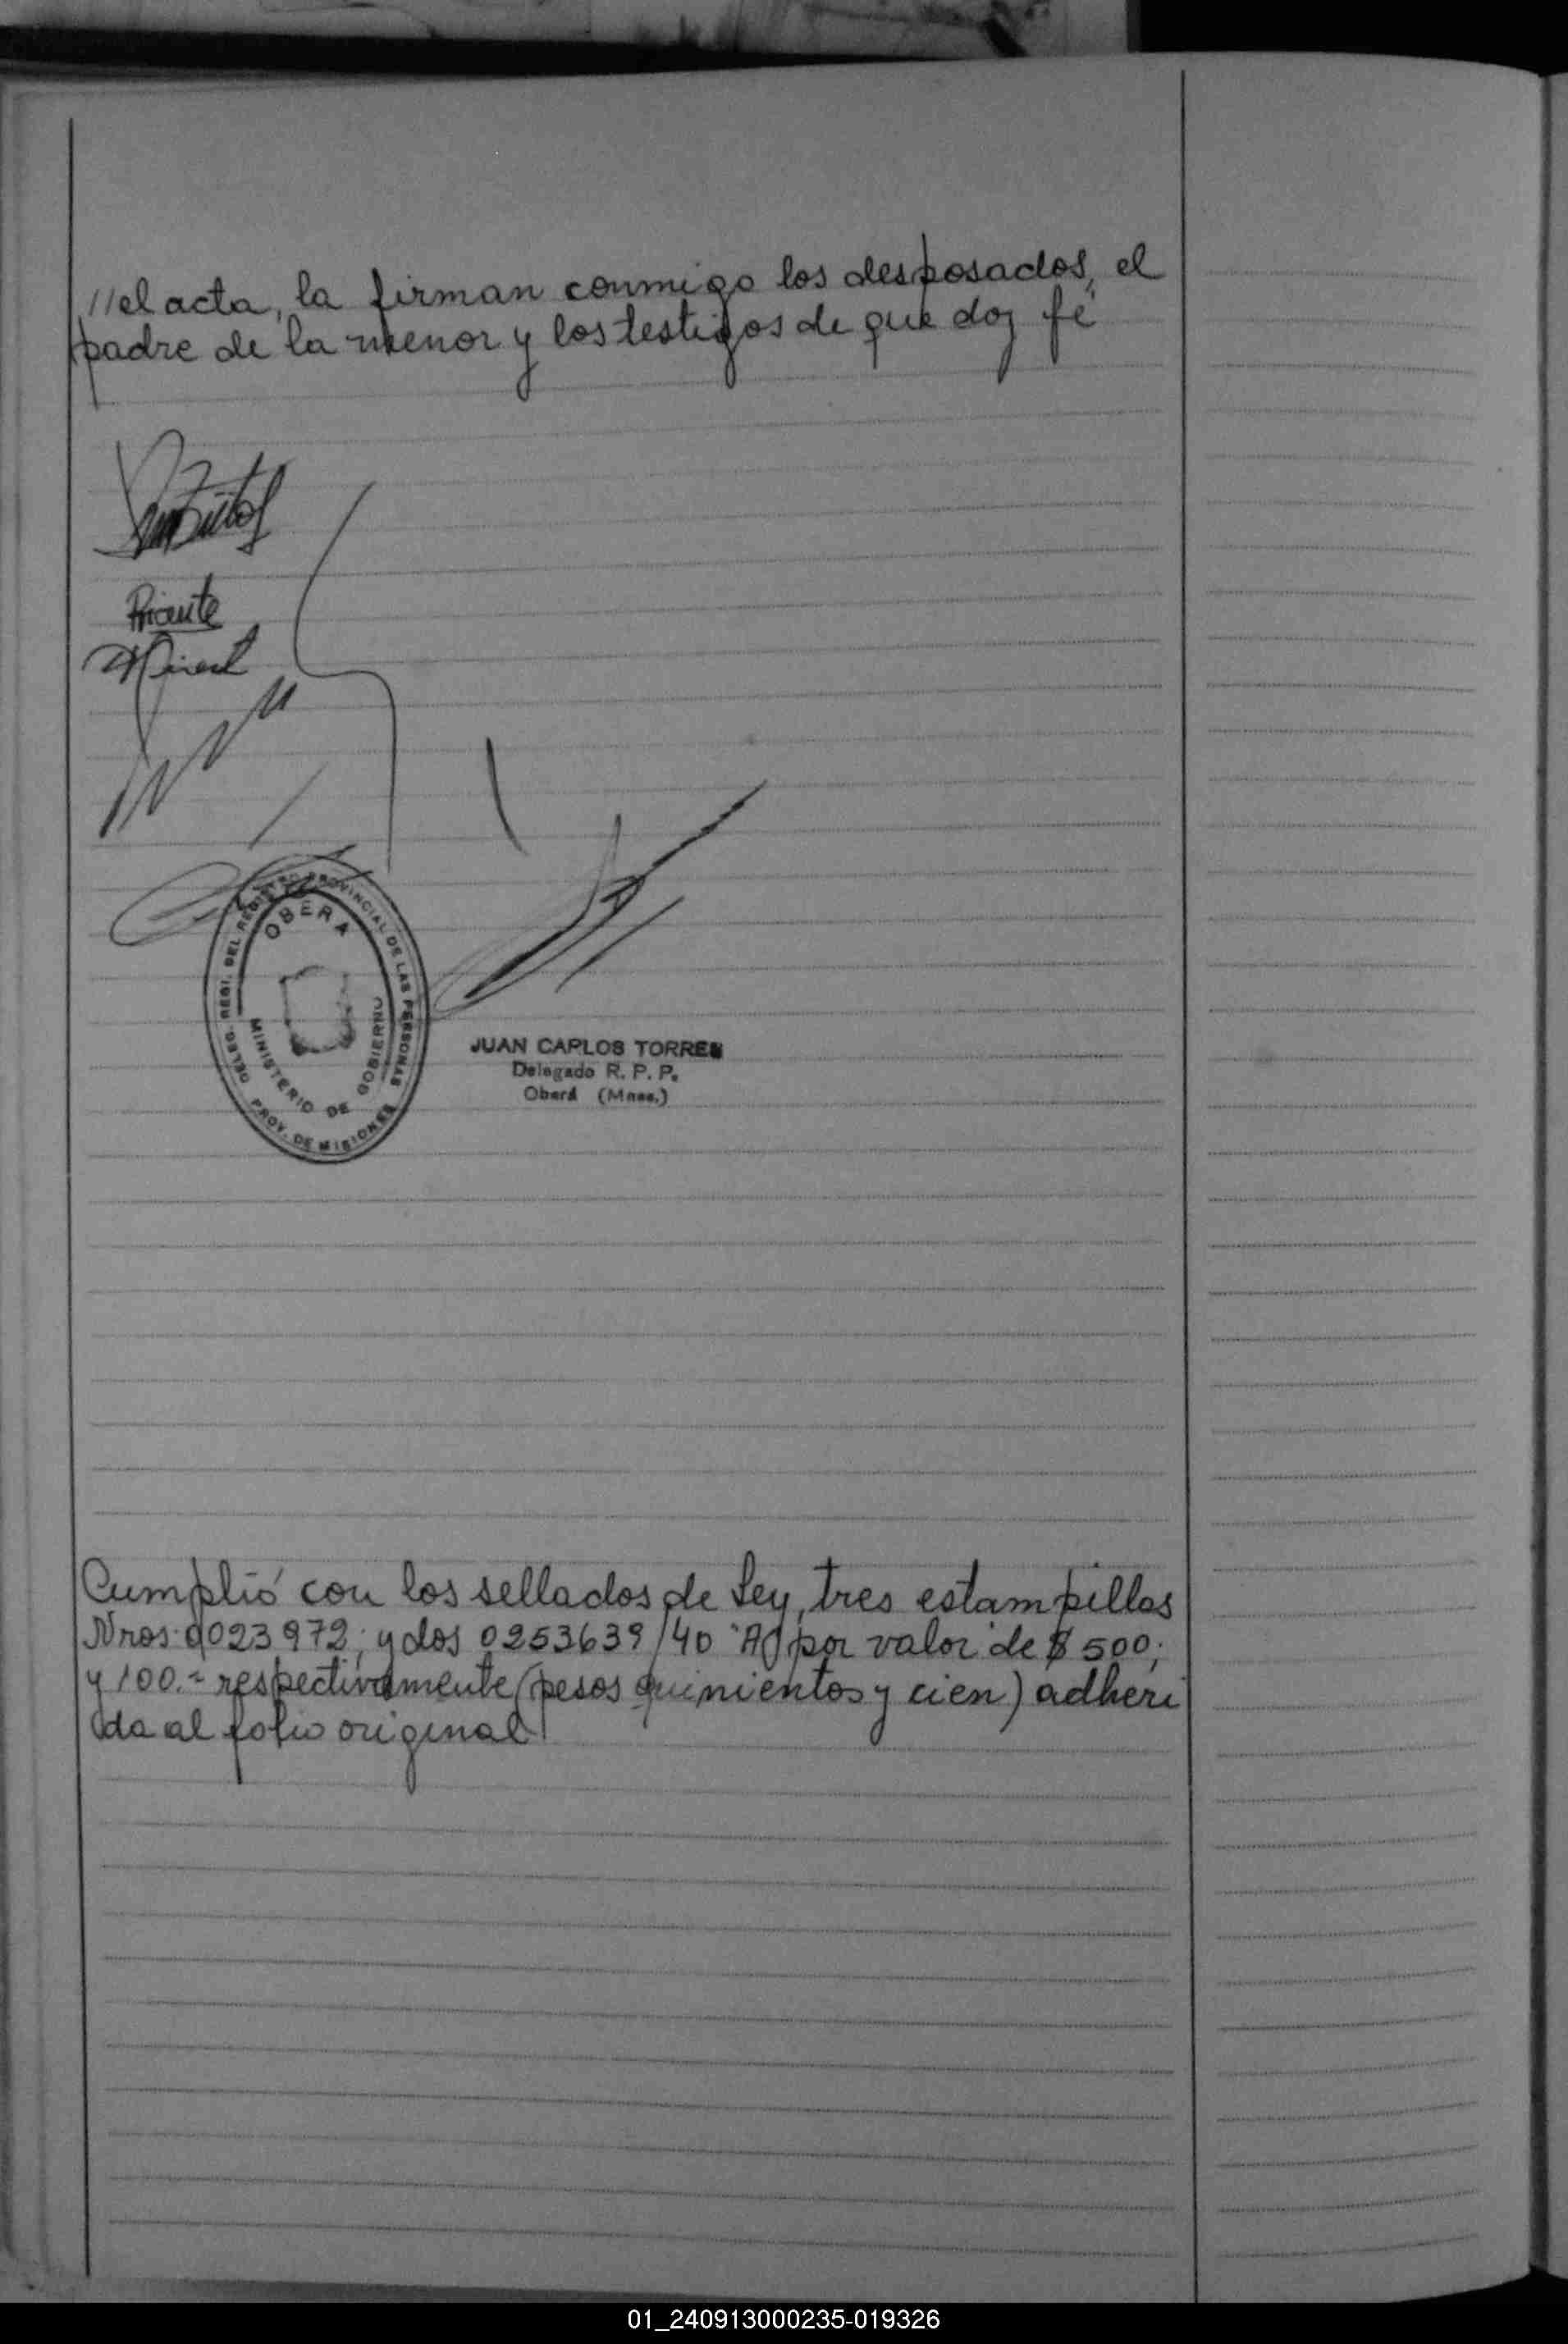 //el acta, la firman conmigo los desposados, el
padre de la menor y los testigos de que doy fé
OBERA
DELEG. REGI. DEL REGISTRO PROVINCIAL DE LAS PERSONAS
MINISTERIO DE GOBIERNO
PROV. DE MISIONES
JUAN CARLOS TORRES
Delegado R. P. P.
Oberá (Mnes.)
Cumplió con los sellados de Ley, tres estampillas
Nros. 0023972; y dos 0253639/40 "A" por valor de $ 500;
y 100.= respectivamente (pesos quinientos y cien) adheri
da al folio original
01_240913000235-019326